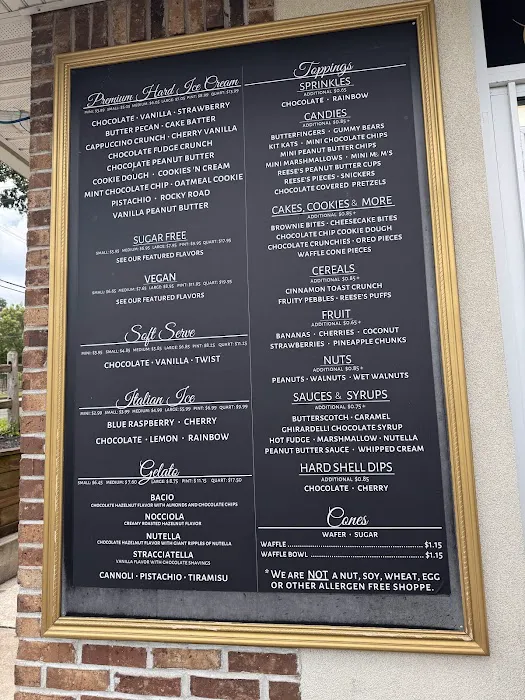 Premium Hard Ice Cream
CHOCOLATE • VANILLA • STRAWBERRY
BUTTER PECAN • CAKE BATTER
CAPPUCCINO CRUNCH • CHERRY VANILLA
CHOCOLATE FUDGE CRUNCH
CHOCOLATE PEANUT BUTTER
COOKIE DOUGH • COOKIES 'N CREAM
MINT CHOCOLATE CHIP • OATMEAL COOKIE
PISTACHIO • ROCKY ROAD
VANILLA PEANUT BUTTER
SUGAR FREE
SMALL: $5.95 MEDIUM: $6.95 LARGE: $7.95 PINT: $8.95 QUART: $17.95
SEE OUR FEATURED FLAVORS
VEGAN
SEE OUR FEATURED FLAVORS
Soft Serve
MINI: $3.95 SMALL: $4.85 MEDIUM: $5.85 LARGE: $6.85 PINT: $8.25 QUART: $11.25
CHOCOLATE • VANILLA • TWIST
Italian Ice
MINI: $2.99 SMALL: $3.99 MEDIUM: $4.99 LARGE: $5.99 PINT: $6.99 QUART: $9.99
BLUE RASPBERRY • CHERRY
CHOCOLATE • LEMON • RAINBOW
Gelato
SMALL: $6.45 MEDIUM: $7.60 LARGE: $8.75 PINT: $11.15 QUART: $17.50
BACIO
CHOCOLATE HAZELNUT FLAVOR WITH ALMONDS AND CHOCOLATE CHIPS
NOCCIOLA
CREAMY ROASTED HAZELNUT FLAVOR
NUTELLA
CHOCOLATE HAZELNUT FLAVOR WITH GIANT RIPPLES OF NUTELLA
STRACCIATELLA
VANILLA FLAVOR WITH CHOCOLATE SHAVINGS
CANNOLI • PISTACHIO • TIRAMISU
Toppings
SPRINKLES
ADDITIONAL $0.65
CHOCOLATE • RAINBOW
CANDIES
ADDITIONAL $0.85+
BUTTERFINGERS • GUMMY BEARS
KIT KATS • MINI CHOCOLATE CHIPS
MINI PEANUT BUTTER CHIPS
MINI MARSHMALLOWS • MINI M&M'S
REESE'S PEANUT BUTTER CUPS
REESE'S PIECES • SNICKERS
CHOCOLATE COVERED PRETZELS
CAKES, COOKIES & MORE
ADDITIONAL $0.85+
BROWNIE BITES • CHEESECAKE BITES
CHOCOLATE CHIP COOKIE DOUGH
CHOCOLATE CRUNCHIES • OREO PIECES
WAFFLE CONE PIECES
CEREALS
ADDITIONAL $0.85+
CINNAMON TOAST CRUNCH
FRUITY PEBBLES • REESE'S PUFFS
FRUIT
ADDITIONAL $0.65+
BANANAS • CHERRIES • COCONUT
STRAWBERRIES • PINEAPPLE CHUNKS
NUTS
ADDITIONAL $0.85+
PEANUTS • WALNUTS • WET WALNUTS
SAUCES & SYRUPS
ADDITIONAL $0.75+
BUTTERSCOTCH • CARAMEL
GHIRARDELLI CHOCOLATE SYRUP
HOT FUDGE • MARSHMALLOW • NUTELLA
PEANUT BUTTER SAUCE • WHIPPED CREAM
HARD SHELL DIPS
ADDITIONAL $0.85
CHOCOLATE • CHERRY
Cones
WAFER • SUGAR
WAFFLE ........ $1.15
WAFFLE BOWL ........ $1.15
*WE ARE NOT A NUT, SOY, WHEAT, EGG
OR OTHER ALLERGEN FREE SHOPPE.